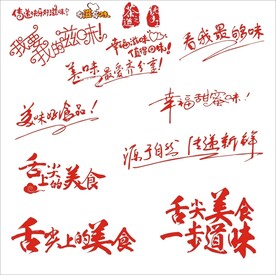 传递快乐好滋味!
我要我的滋味!
幸福滋味
值得回味!
看我最够味
美味最爱齐分享!
美味的食品!
幸福甜蜜味!
源于自然 传递新鲜
舌尖上的美食
舌尖上的美食
舌尖美食
一步道味